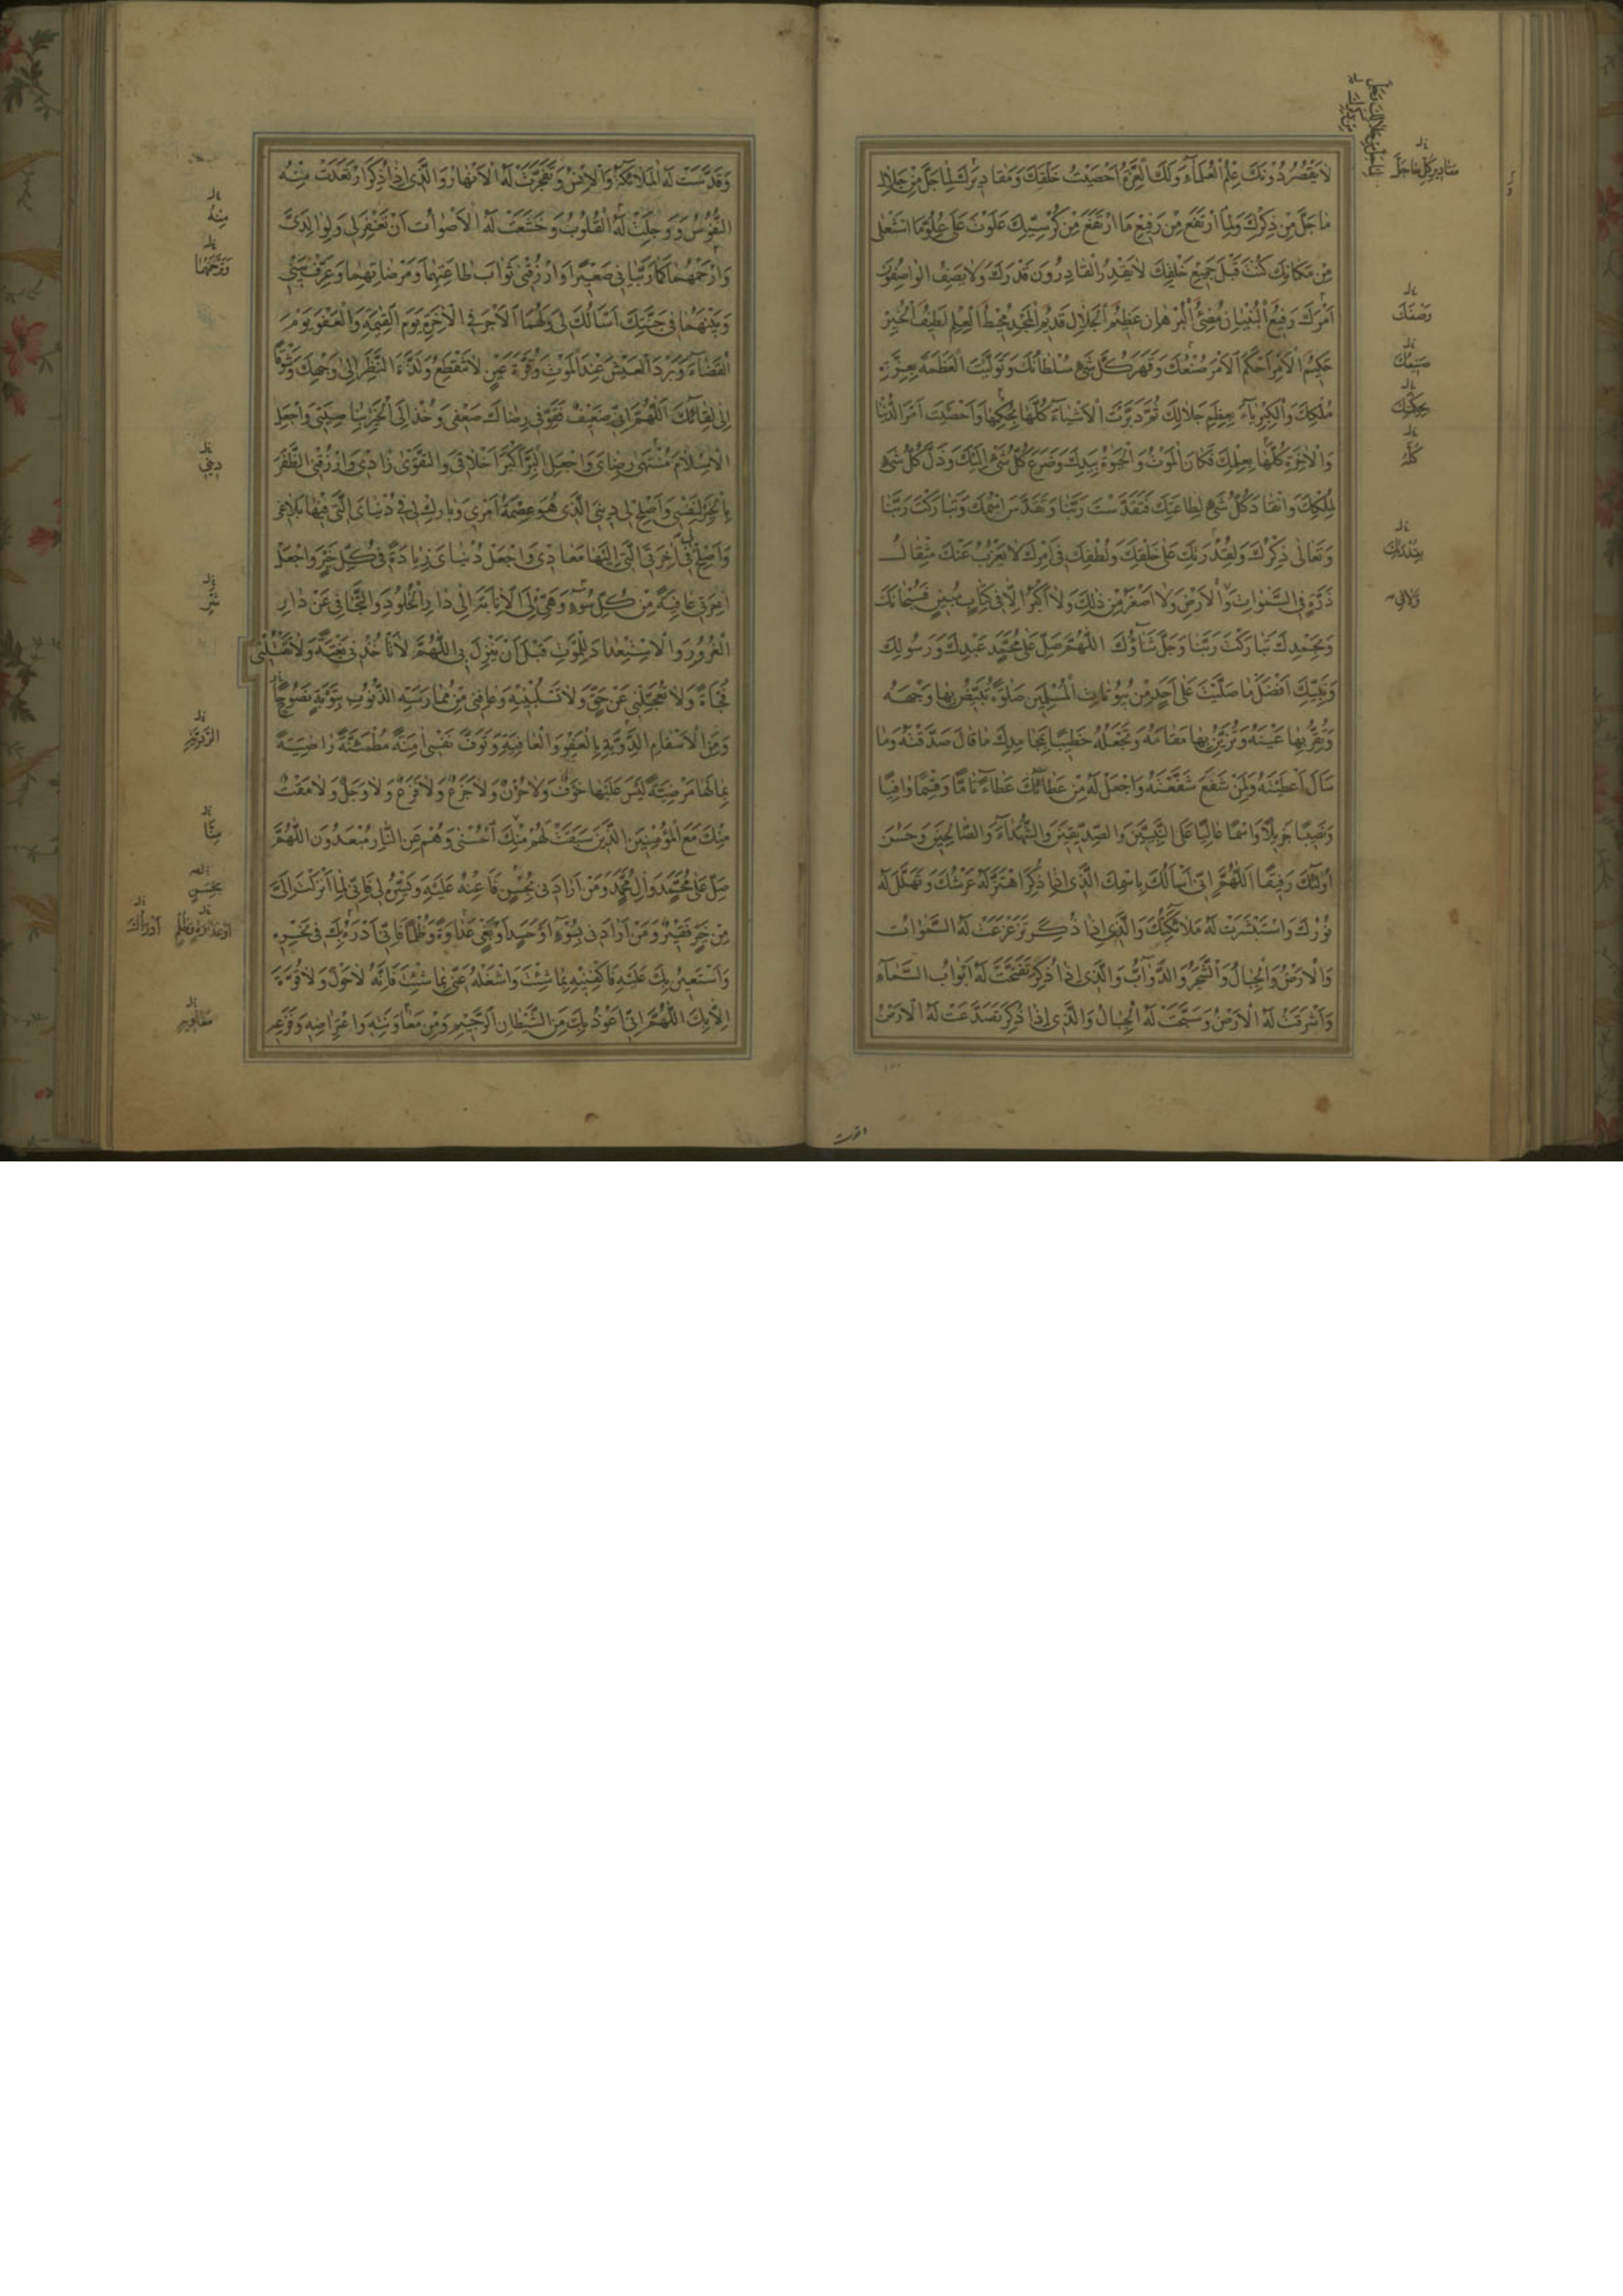 لا يَقْصُرُ دُونَكَ عِلْمُ الْعُلَمَاءِ وَلَكَ الْعِزَّةُ اَحْصَيْتَ خَلْقَكَ وَمَقَادِيرَكَ لِمَا جَلَّ مِنْ جَلَالِ
مَا جَلَّ مِنْ ذِكْرِكَ وَلِمَا ارْتَفَعَ مِنْ رَفِيعِ مَا ارْتَفَعَ مِنْ كُرْسِيِّكَ عَلَوْتَ عَلَى عُلُوِّ مَا اسْتَعْلَى
مِنْ مَكَانِكَ كُنْتَ قَبْلَ جَمِيعِ خَلْقِكَ لَا يَقْدِرُ الْقَادِرُونَ قَدْرَكَ وَلَا يَصِفُ الْوَاصِفُونَ
اَمْرَكَ رَفِيعُ الْبُنْيَانِ مُضِيءُ الْبُرْهَانِ عَظِيمُ الْجَلَالِ قَدِيمُ الْمَجْدِ مُحِيطُ الْعِلْمِ لَطِيفُ الْخُبْرِ
حَكِيمُ الْاَمْرِ اَحْكَمَ الْاَمْرَ صُنْعُكَ وَقَهَرَ كُلَّ شَيْءٍ سُلْطَانُكَ وَتَوَلَّيْتَ الْعَظَمَةَ بِعِزَّةِ
مُلْكِكَ وَالْكِبْرِيَاءَ بِعِظَمِ جَلَالِكَ ثُمَّ دَبَّرْتَ الْاَشْيَاءَ كُلَّهَا بِحُكْمِهَا وَاَحْصَيْتَ اَمْرَ الدُّنْيَا
وَالْاٰخِرَةِ كُلَّهَا بِعِلْمِكَ فَكَانَ الْمَوْتُ وَالْحَيٰوةُ بِيَدِكَ وَضَرَعَ كُلُّ شَيْءٍ اِلَيْكَ وَذَلَّ كُلُّ شَيْءٍ
لِمُلْكِكَ وَانْقَادَ كُلُّ شَيْءٍ لِطَاعَتِكَ فَتَقَدَّسْتَ رَبَّنَا وَتَقَدَّسَ اسْمُكَ وَتَبَارَكْتَ رَبَّنَا
وَتَعَالَى ذِكْرُكَ وَلِقُدْرَتِكَ عَلَى خَلْقِكَ وَلُطْفِكَ فِي اَمْرِكَ لَا يَعْزُبُ عَنْكَ مِثْقَالُ
ذَرَّةٍ فِي السَّمٰوَاتِ وَالْاَرْضِ وَلَا اَصْغَرُ مِنْ ذٰلِكَ وَلَا اَكْبَرُ اِلَّا فِي كِتَابٍ مُبِينٍ فَسُبْحَانَكَ
وَبِحَمْدِكَ تَبَارَكْتَ رَبَّنَا وَجَلَّ ثَنَاؤُكَ اَللّٰهُمَّ صَلِّ عَلَى مُحَمَّدٍ عَبْدِكَ وَرَسُولِكَ
وَنَبِيِّكَ اَفْضَلَ مَا صَلَّيْتَ عَلَى اَحَدٍ مِنْ بُيُوتَاتِ الْمُسْلِمِينَ صَلٰوةً تُبَيِّضُ بِهَا وَجْهَهُ
وَتُقِرُّ بِهَا عَيْنَهُ وَتُزَيِّنُ بِهَا مَقَامَهُ وَتَجْعَلُهُ خَطِيبًا بِمَحَامِدِكَ مَا قَالَ صَدَّقْتَهُ وَمَا
سَاَلَ اَعْطَيْتَهُ وَلِمَنْ شَفَعَ شَفَّعْتَهُ وَاجْعَلْ لَهُ مِنْ عَطَائِكَ عَطَاءً تَامًّا وَقِسْمًا وَافِيًا
وَنَصِيبًا جَزِيلًا وَاسْمًا عَالِيًا عَلَى النَّبِيِّينَ وَالصِّدِّيقِينَ وَالشُّهَدَاءِ وَالصَّالِحِينَ وَحَسُنَ
اُولٰئِكَ رَفِيقًا اَللّٰهُمَّ اِنِّي اَسْاَلُكَ بِاسْمِكَ الَّذِي اِذَا ذُكِرَ اهْتَزَّ لَهُ عَرْشُكَ وَتَهَلَّلَ لَهُ
نُورُكَ وَاسْتَبْشَرَتْ لَهُ مَلَائِكَتُكَ وَالَّذِي اِذَا ذُكِرَ تَزَعْزَعَتْ لَهُ السَّمٰوَاتُ
وَالْاَرْضُ وَالْجِبَالُ وَالشَّجَرُ وَالدَّوَابُّ وَالَّذِي اِذَا ذُكِرَ تَفَتَّحَتْ لَهُ اَبْوَابُ السَّمَاءِ
وَاَشْرَقَتْ لَهُ الْاَرْضُ وَسَبَّحَتْ لَهُ الْجِبَالُ وَالَّذِي اِذَا ذُكِرَ تَصَدَّعَتْ لَهُ الْاَرْضُ
وَصْفَكَ
صَنِيعُكَ
بِحِكْمَتِكَ
كُلَّهُ
بِقُدْرَتِكَ
وَقَدَّسَتْ لَهُ الْمَلَائِكَةُ وَالْاِنْسُ وَتَفَجَّرَتْ لَهُ الْاَنْهَارُ وَالَّذِي اِذَا ذُكِرَ ارْتَعَدَتْ مِنْهُ
النُّفُوسُ وَوَجِلَتْ لَهُ الْقُلُوبُ وَخَشَعَتْ لَهُ الْاَصْوَاتُ اَنْ تَغْفِرَ لِي وَلِوَالِدَيَّ
وَارْحَمْهُمَا كَمَا رَبَّيَانِي صَغِيرًا وَارْزُقْنِي ثَوَابَ طَاعَتِهِمَا وَمَرْضَاتِهِمَا وَعَرِّفْ بَيْنِي
وَبَيْنَهُمَا فِي جَنَّتِكَ اَسْاَلُكَ لِي وَلَهُمَا الْاَجْرَ فِي الْاٰخِرَةِ يَوْمَ الْقِيٰمَةِ وَالْعَفْوَ يَوْمَ
الْقَضَاءِ وَبَرْدَ الْعَيْشِ عِنْدَ الْمَوْتِ وَقُرَّةَ عَيْنٍ لَا تَنْقَطِعُ وَلَذَّةَ النَّظَرِ اِلَى وَجْهِكَ وَشَوْقًا
اِلَى لِقَائِكَ اَللّٰهُمَّ اِنِّي ضَعِيفٌ فَقَوِّ فِي رِضَاكَ ضَعْفِي وَخُذْ اِلَى الْخَيْرِ بِنَاصِيَتِي وَاجْعَلِ
الْاِسْلَامَ مُنْتَهَى رِضَايَ وَاجْعَلِ الْبِرَّ اَكْبَرَ اَخْلَاقِي وَالتَّقْوٰى زَادِي وَارْزُقْنِي الظَّفَرَ
بِالْخَيْرِ لِنَفْسِي وَاَصْلِحْ لِي دِينِيَ الَّذِي هُوَ عِصْمَةُ اَمْرِي وَبَارِكْ لِي فِي دُنْيَايَ الَّتِي فِيهَا بَلَاغِي
وَاَصْلِحْ لِي اٰخِرَتِيَ الَّتِي اِلَيْهَا مَعَادِي وَاجْعَلْ دُنْيَايَ زِيَادَةً فِي كُلِّ خَيْرٍ وَاجْعَلْ
اٰخِرَتِي عَافِيَةً مِنْ كُلِّ سُوءٍ وَهَيِّئْ لِيَ الْاِنَابَةَ اِلَى دَارِ الْخُلُودِ وَالتَّجَافِيَ عَنْ دَارِ
الْغُرُورِ وَالْاِسْتِعْدَادَ لِلْمَوْتِ قَبْلَ اَنْ يَنْزِلَ بِي اَللّٰهُمَّ لَا تَاْخُذْنِي بَغْتَةً وَلَا تَقْتُلْنِي
فُجَاةً وَلَا تُعَجِّلْنِي عَنْ حَقٍّ وَلَا تَسْلُبْنِيهِ وَعَافِنِي مِنْ مُمَارَسَةِ الذُّنُوبِ بِتَوْبَةٍ نَصُوحٍ
وَمِنَ الْاَسْقَامِ الدَّوِيَّةِ بِالْعَفْوِ وَالْعَافِيَةِ وَتَوَفَّ نَفْسِي اٰمِنَةً مُطْمَئِنَّةً رَاضِيَةً
بِمَا لَهَا مَرْضِيَّةً لَيْسَ عَلَيْهَا خَوْفٌ وَلَا حُزْنٌ وَلَا جَزَعٌ وَلَا فَزَعٌ وَلَا وَجَلٌ وَلَا مَقْتٌ
مِنْكَ مَعَ الْمُؤْمِنِينَ الَّذِينَ سَبَقَتْ لَهُمْ مِنْكَ الْحُسْنٰى وَهُمْ عَنِ النَّارِ مُبْعَدُونَ اَللّٰهُمَّ
صَلِّ عَلَى مُحَمَّدٍ وَاٰلِ مُحَمَّدٍ وَمَنْ اَرَادَنِي بِحُسْنٍ فَاَعِنْهُ عَلَيْهِ وَيَسِّرْهُ لِي فَاِنِّي لِمَا اَنْزَلْتَ اِلَيَّ
مِنْ خَيْرٍ فَقِيرٌ وَمَنْ اَرَادَنِي بِسُوءٍ اَوْ حَسَدٍ اَوْ بَغْيٍ عَدَاوَةً وَظُلْمًا فَاِنِّي اَدْرَؤُ بِكَ فِي نَحْرِهِ
وَاَسْتَعِينُ بِكَ عَلَيْهِ فَاكْفِنِيهِ بِمَا شِئْتَ وَاشْغَلْهُ عَنِّي بِمَا شِئْتَ فَاِنَّهُ لَا حَوْلَ وَلَا قُوَّةَ
اِلَّا بِكَ اَللّٰهُمَّ اِنِّي اَعُوذُ بِكَ مِنَ الشَّيْطَانِ الرَّجِيمِ وَمِنْ مَعَاوَنَتِهِ وَاعْتِرَاضِهِ وَفَزَعِهِ
مِنْهُ
دِينِي